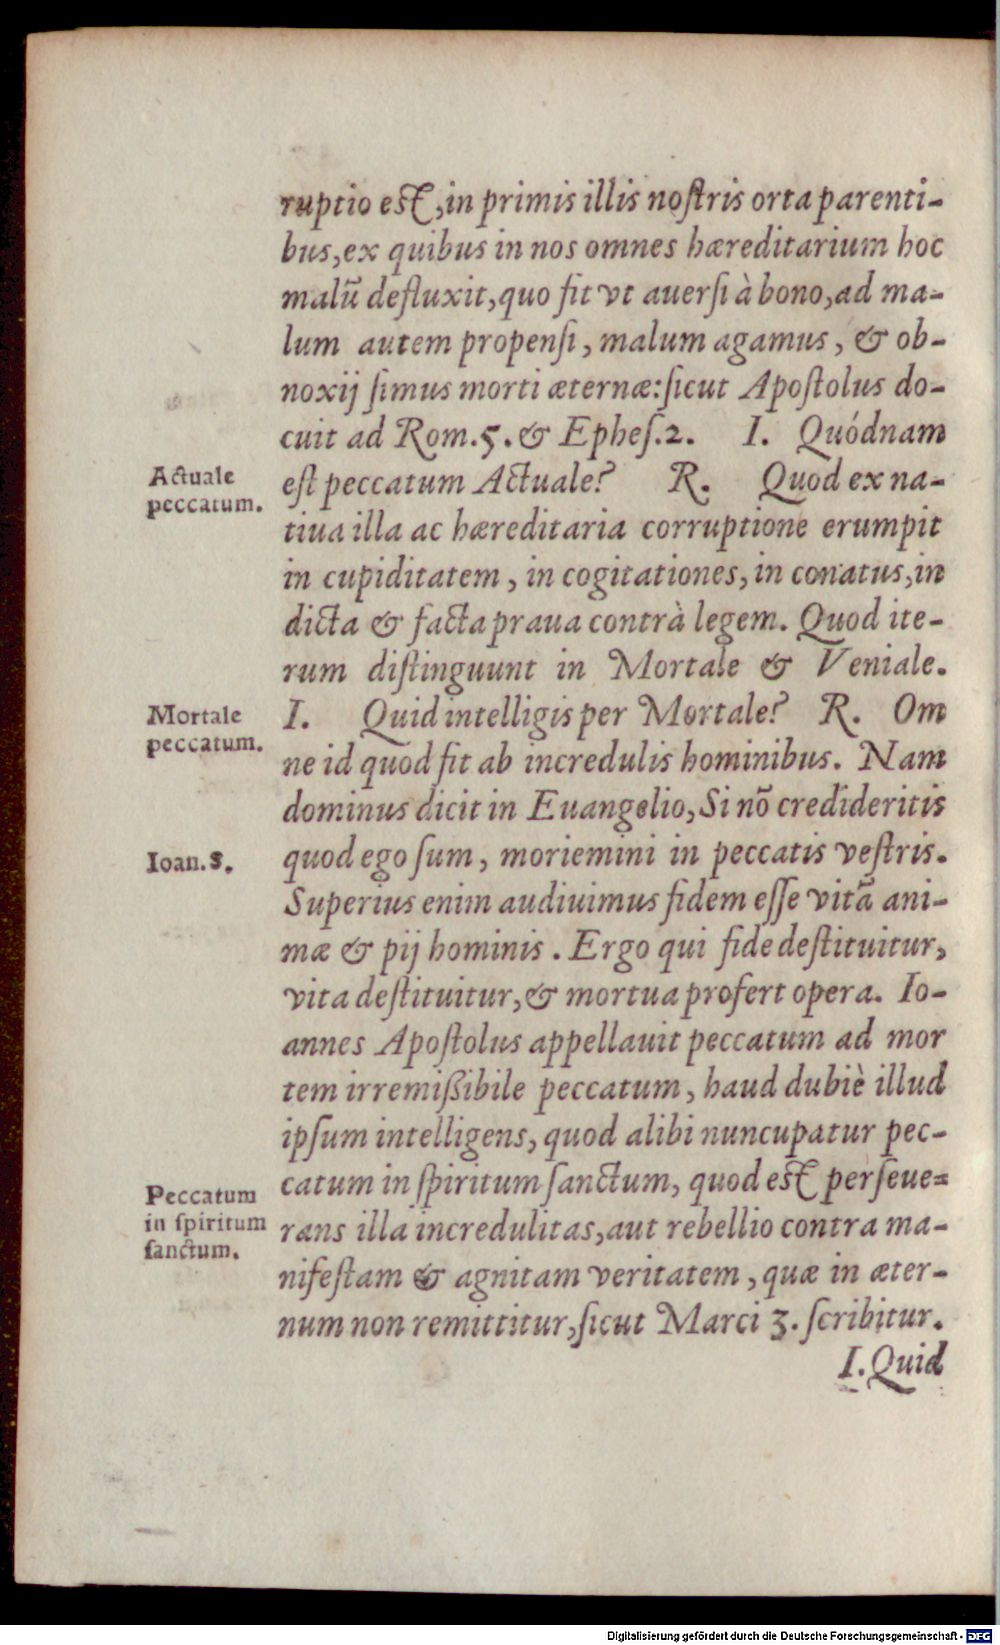 ruptio est, in primis illis nostris orta parenti-
bus, ex quibus in nos omnes hæreditarium hoc
malũ defluxit, quo fit vt auersi à bono, ad ma-
lum autem propensi, malum agamus, & ob-
noxij simus morti æternæ: sicut Apostolus do-
cuit ad Rom. 5. & Ephes. 2. I. Quódnam
Actuale
peccatum.
est peccatum Actuale? R. Quod ex na-
tiua illa ac hæreditaria corruptione erumpit
in cupiditatem, in cogitationes, in conatus, in
dicta & facta praua contrà legem. Quod ite-
rum distinguunt in Mortale & Veniale.
Mortale
peccatum.
I. Quid intelligis per Mortale? R. Om
ne id quod fit ab incredulis hominibus. Nam
dominus dicit in Euangelio, Si nõ credideritis
Ioan. 8.
quod ego sum, moriemini in peccatis vestris.
Superius enim audiuimus fidem esse vitã ani-
mæ & pij hominis. Ergo qui fide destituitur,
vita destituitur, & mortua profert opera. Io-
annes Apostolus appellauit peccatum ad mor
tem irremißibile peccatum, haud dubiè illud
ipsum intelligens, quod alibi nuncupatur pec-
Peccatum
in spiritum
sanctum.
catum in spiritum sanctum, quod est perseue-
rans illa incredulitas, aut rebellio contra ma-
nifestam & agnitam veritatem, quæ in æter-
num non remittitur, sicut Marci 3. scribitur.
I. Quid
Digitalisierung gefördert durch die Deutsche Forschungsgemeinschaft - DFG